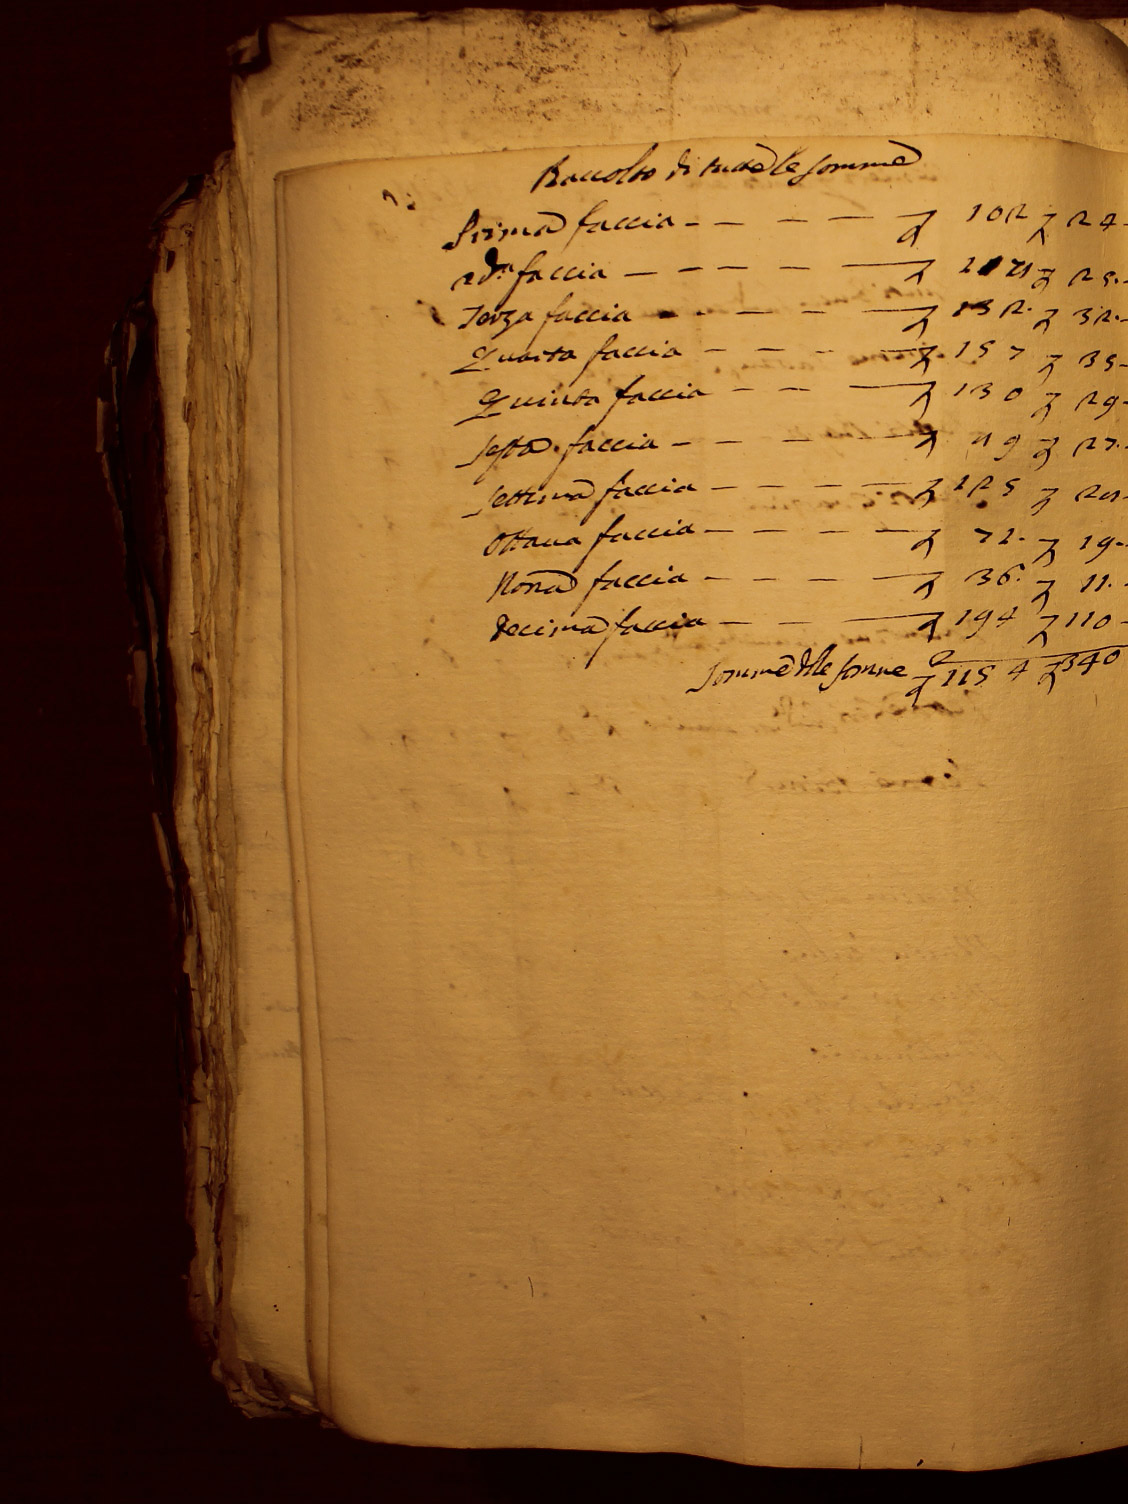 Raccolto di tutte le somme
Prima faccia — — — — 102 24
2da faccia — — — — — 25
Terza faccia — — — — 132 32
Quarta faccia — — — — 157 35
Quinta faccia — — — 130 29
Sesta faccia — — — 27
Settima faccia — — — — 125
Ottava faccia — — — — 72 19
Nona faccia — — — — 36 11
Decima faccia — — — — 194 110
Somme delle somme 1154 340